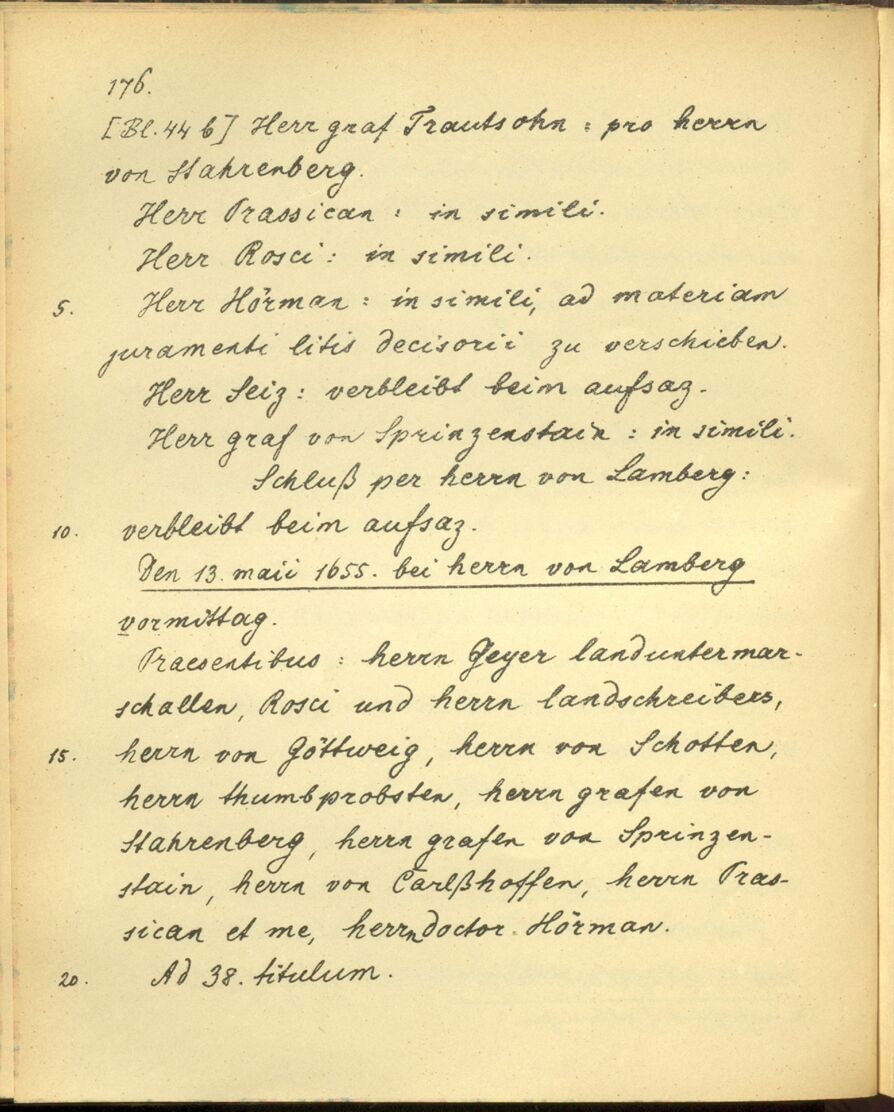 176.
[Bl. 44 b] Herr graf Trautsohn : pro herrn
von Stahrenberg.
Herr Prassican : in simili.
Herr Rosci : in simili.
5. Herr Hörman : in simili, ad materiam
juramenti litis decisorii zu verschieben.
Herr Seiz : verbleibt beim aufsaz.
Herr graf von Sprinzenstain : in simili.
Schluß per herrn von Lamberg :
10. verbleibt beim aufsaz.
Den 13. maii 1655. bei herrn von Lamberg
vormittag.
Praesentibus : herrn Geyer landuntermar-
schallen, Rosci und herrn landschreibers,
15. herrn von Göttweig, herrn von Schotten,
herrn thumbprobsten, herrn grafen von
Stahrenberg, herrn grafen von Sprinzen-
stain, herrn von Carlßhoffen, herrn Pras-
sican et me, herrn doctor Hörman.
20. Ad 38. titulum.